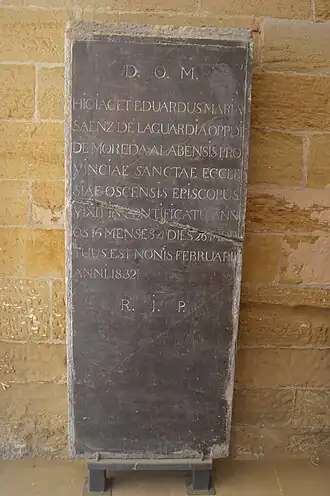 D. O. M.
HIC IACET EDUARDUS MARIA
SAENZ DE LAGUARDIA OPPDI
DE MOREDA ALABENSIS PRO
VINCIAE SANCTAE ECCLE
SIAE OSCENSIS EPISCOPUS
VIXIT IN PONTIFICATU ANN
OS 16 MENSES 4 DIES 26 MOR
TUUS EST NONIS FEBRUARII
ANNI 1832
R. I. P.